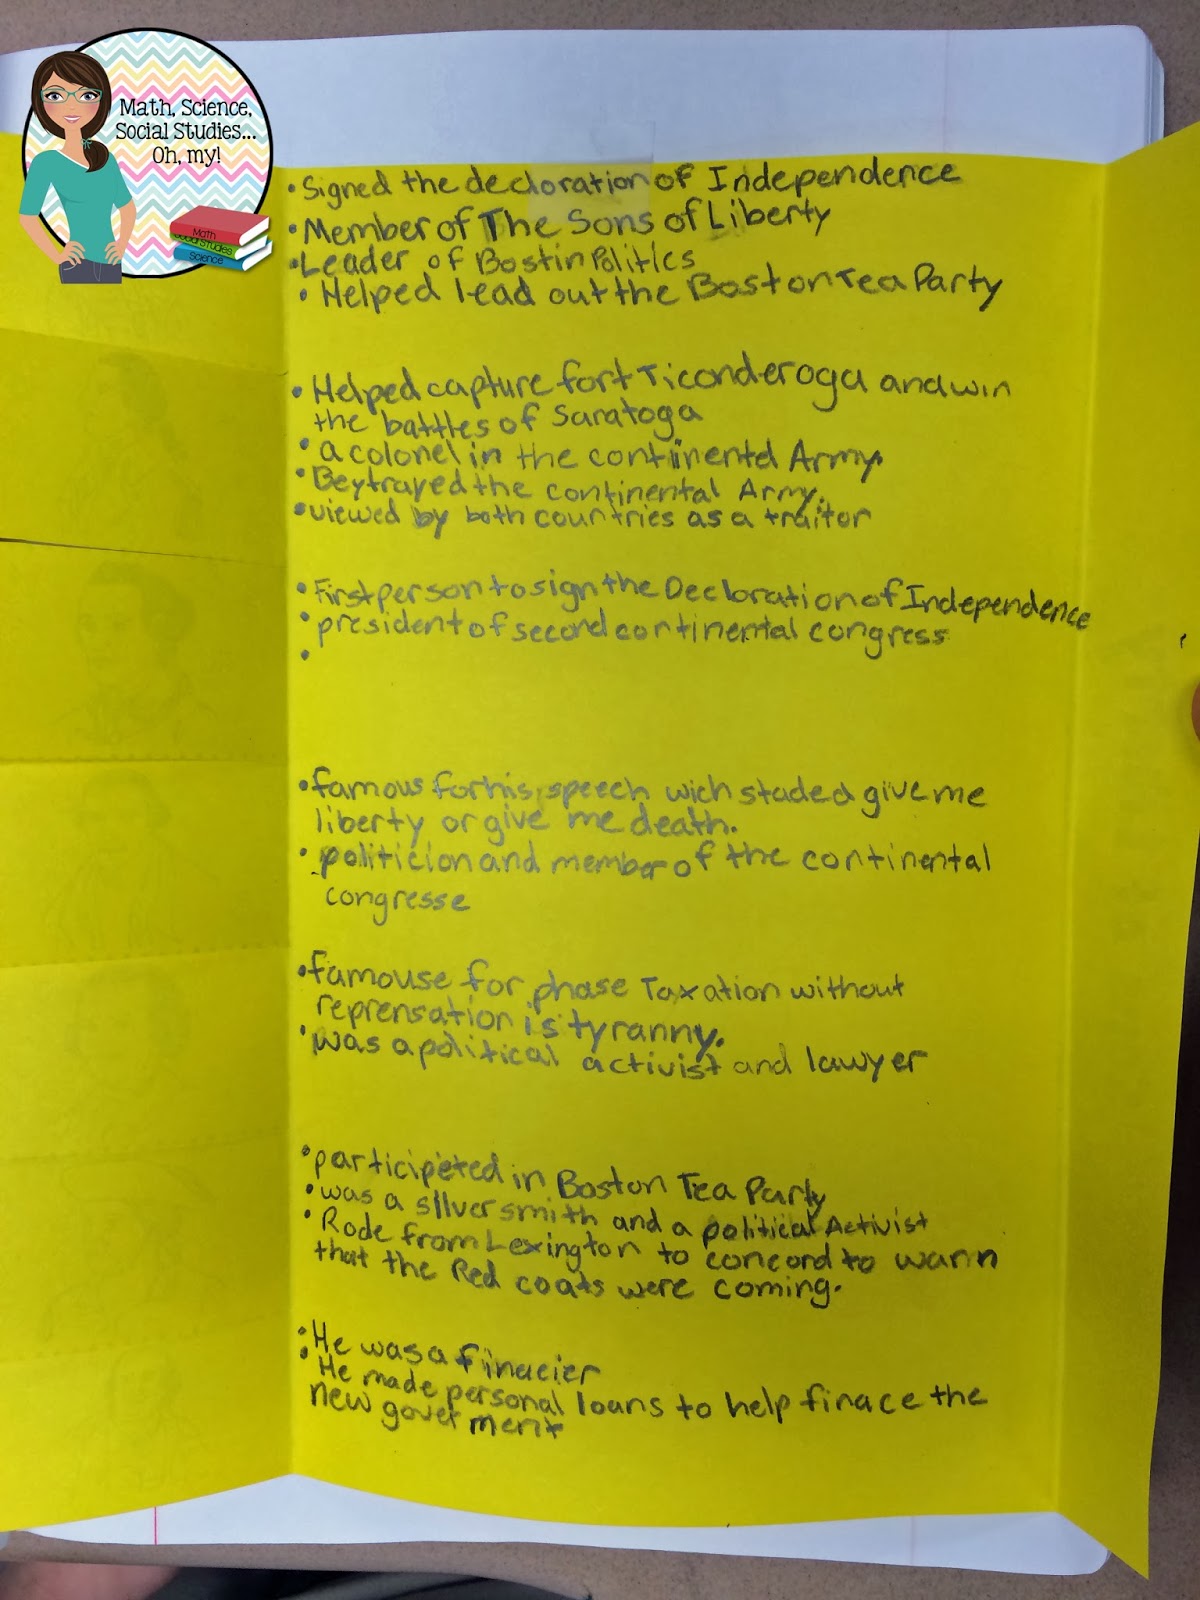 Math, Science,
Social Studies...
Oh, my!
Math
Social Studies
Science
• Signed the decloration of Independence
• Member of The Sons of Liberty
• Leader of Bostin Politics
• Helped lead out the Boston Tea Party
• Helped capture fort Ticonderoga and win
the battles of Saratoga
• a colonel in the continental Army.
• Beytrayed the continental Army.
• viewed by both countries as a traitor
• First person to sign the Decloration of Independence
• president of second continental congress
•
• famous for his speech wich staded give me
liberty or give me death.
• politicion and member of the continental
congresse
• famouse for phase Taxation without
reprensation is tyranny.
• was a political activist and lawyer
• participeted in Boston Tea Party
• was a silversmith and a political Activist
• Rode from Lexington to concord to warn
that the Red coats were coming.
• He was a finacier
• He made personal loans to help finace the
new goverment